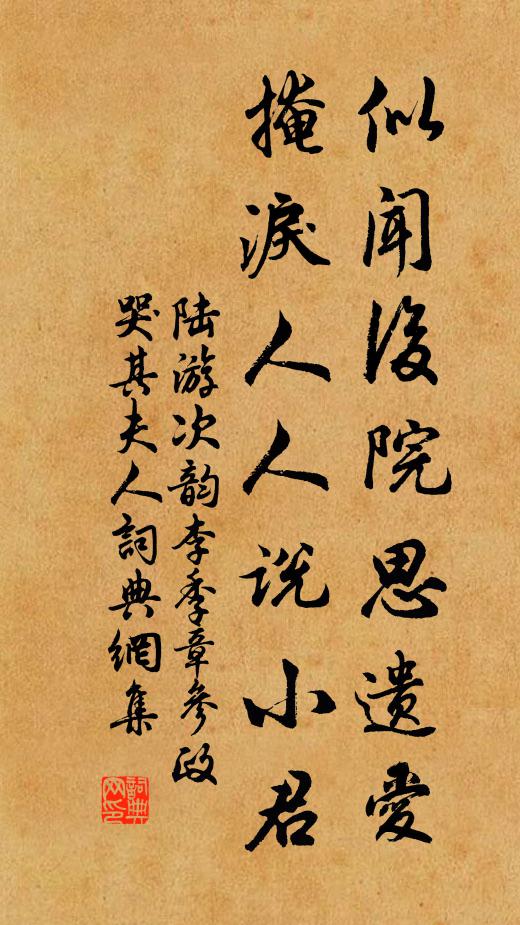 似闻後院思遗爱
掩淚人人说小君
陆游次韵李季章参政
哭其夫人詞典網集
詞典
网印